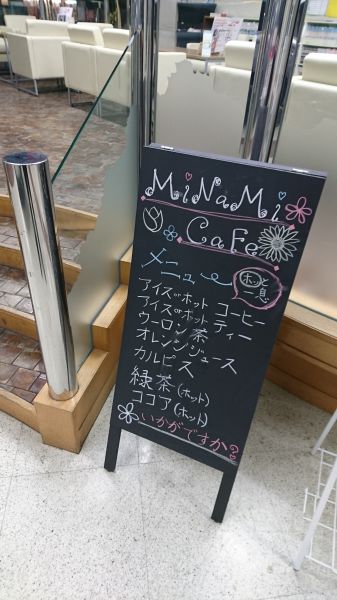 MiNaMi
CaFe
メニュー
ホッと
一息
アイス or ホット コーヒー
アイス or ホット ティー
ウーロン茶
オレンジジュース
カルピス
緑茶(ホット)
ココア(ホット)
いかがですか?